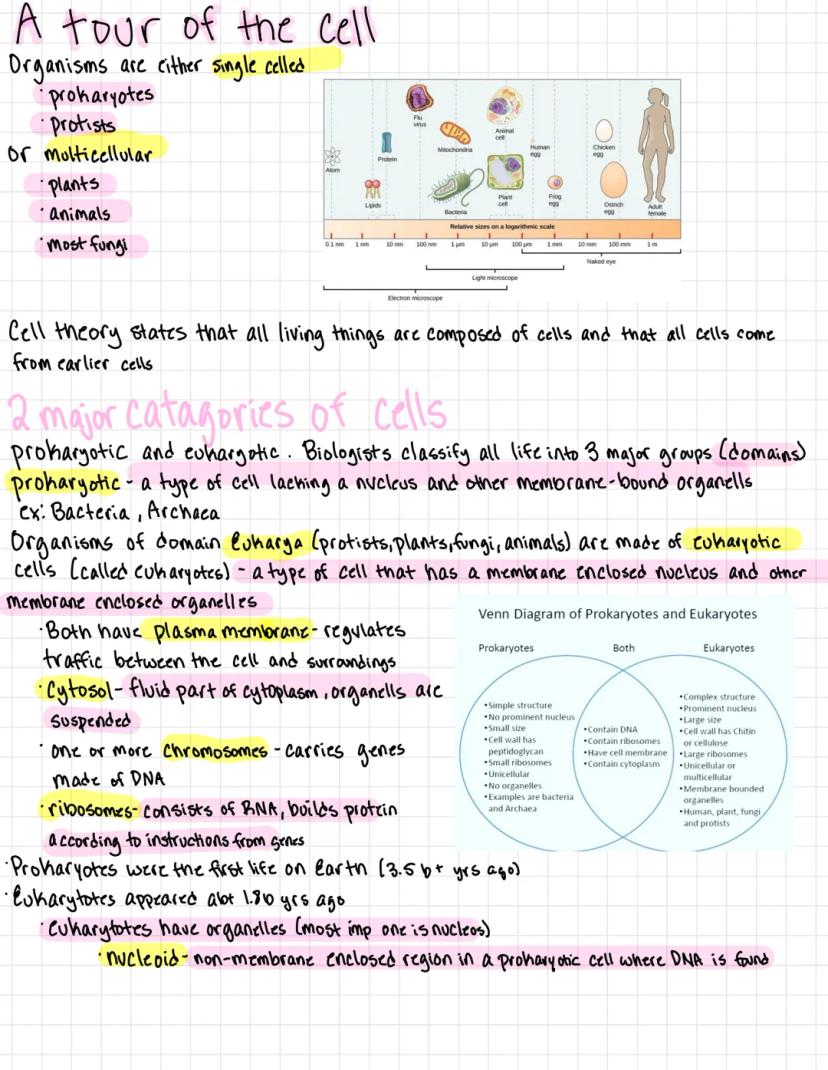 A tour of the cell
Organisms are either single celled
· prokaryotes
· Protists
or multicellular
· plants
· animals
· most fungi
Flu virus
Animal cell
Mitochondria
Protein
Human egg
Chicken egg
Atom
Lipids
Bacteria
Plant cell
Frog egg
Ostrich egg
Adult female
Relative sizes on a logarithmic scale
0.1 nm 1 nm 10 nm 100 nm 1 μm 10 μm 100 μm 1 mm 10 mm 100 mm 1 m
Naked eye
Light microscope
Electron microscope
Cell theory states that all living things are composed of cells and that all cells come
from earlier cells
2 major catagories of cells
prokaryotic and eukaryotic. Biologists classify all life into 3 major groups (domains)
prokaryotic - a type of cell lacking a nucleus and other membrane-bound organells
ex: Bacteria, Archaea
Organisms of domain Eukarya (protists, plants, fungi, animals) are made of eukaryotic
cells (called eukaryotes) - a type of cell that has a membrane enclosed nucleus and other
membrane enclosed organelles
· Both have plasma membrane - regulates
traffic between the cell and surroundings
· Cytosol - fluid part of cytoplasm, organells are
suspended
· one or more chromosomes - carries genes
made of DNA
· ribosomes - consists of RNA, builds protein
according to instructions from genes
Venn Diagram of Prokaryotes and Eukaryotes
Prokaryotes Both Eukaryotes
• Simple structure
• No prominent nucleus
• Small size
• Cell wall has
peptidoglycan
• Small ribosomes
• Unicellular
• No organelles
• Examples are bacteria
and Archaea
• Contain DNA
• Contain ribosomes
• Have cell membrane
• Contain cytoplasm
• Complex structure
• Prominent nucleus
• Large size
• Cell wall has Chitin
or cellulose
• Large ribosomes
• Unicellular or
multicellular
• Membrane bounded
organelles
• Human, plant, fungi
and protists
· Prokaryotes were the first life on Earth (3.5 b+ yrs ago)
· Eukarytotes appeared abt 1.8b yrs ago
· Eukarytotes have organelles (most imp one is nucleos)
· nucleoid - non-membrane enclosed region in a prokaryotic cell where DNA is found